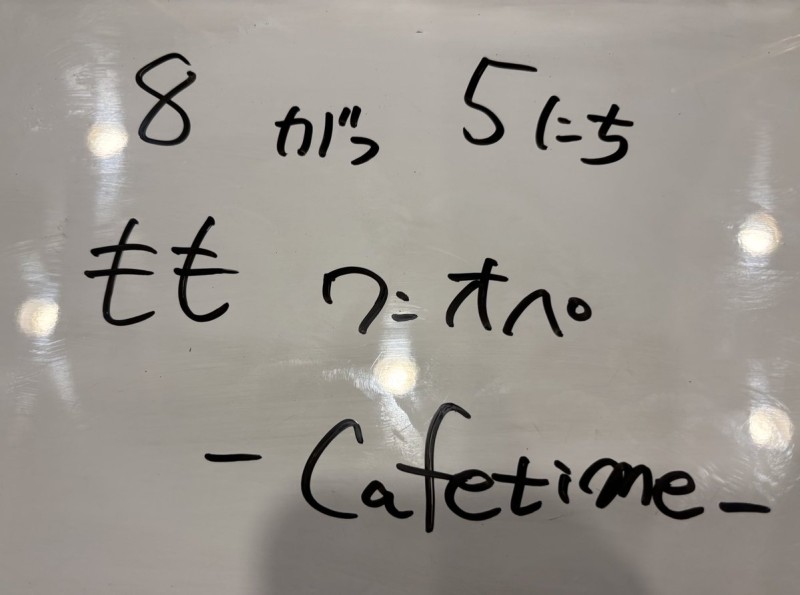 8 がつ 5にち
モモ ワンオペ
- Cafetime -